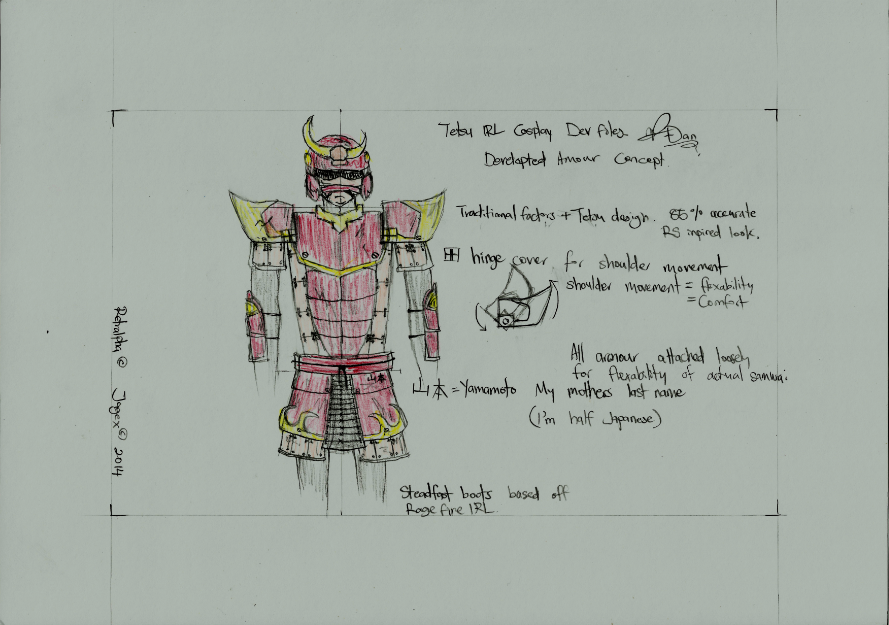 Tetsu IRL Cosplay Dev files. Dan
Developted Amour Concept.
Traditional factors + Tetsu design. 85% accurate
RS inpired look.
hinge cover for shoulder movement
shoulder movement = flexability
= Comfort
All armour attached loosely
for flexability of actual samurai.
山本 = Yamamoto My mothers last name
(I'm half Japanese)
山本
Steadfast boots based off
Ragefire IRL.
© Jagex © 2014